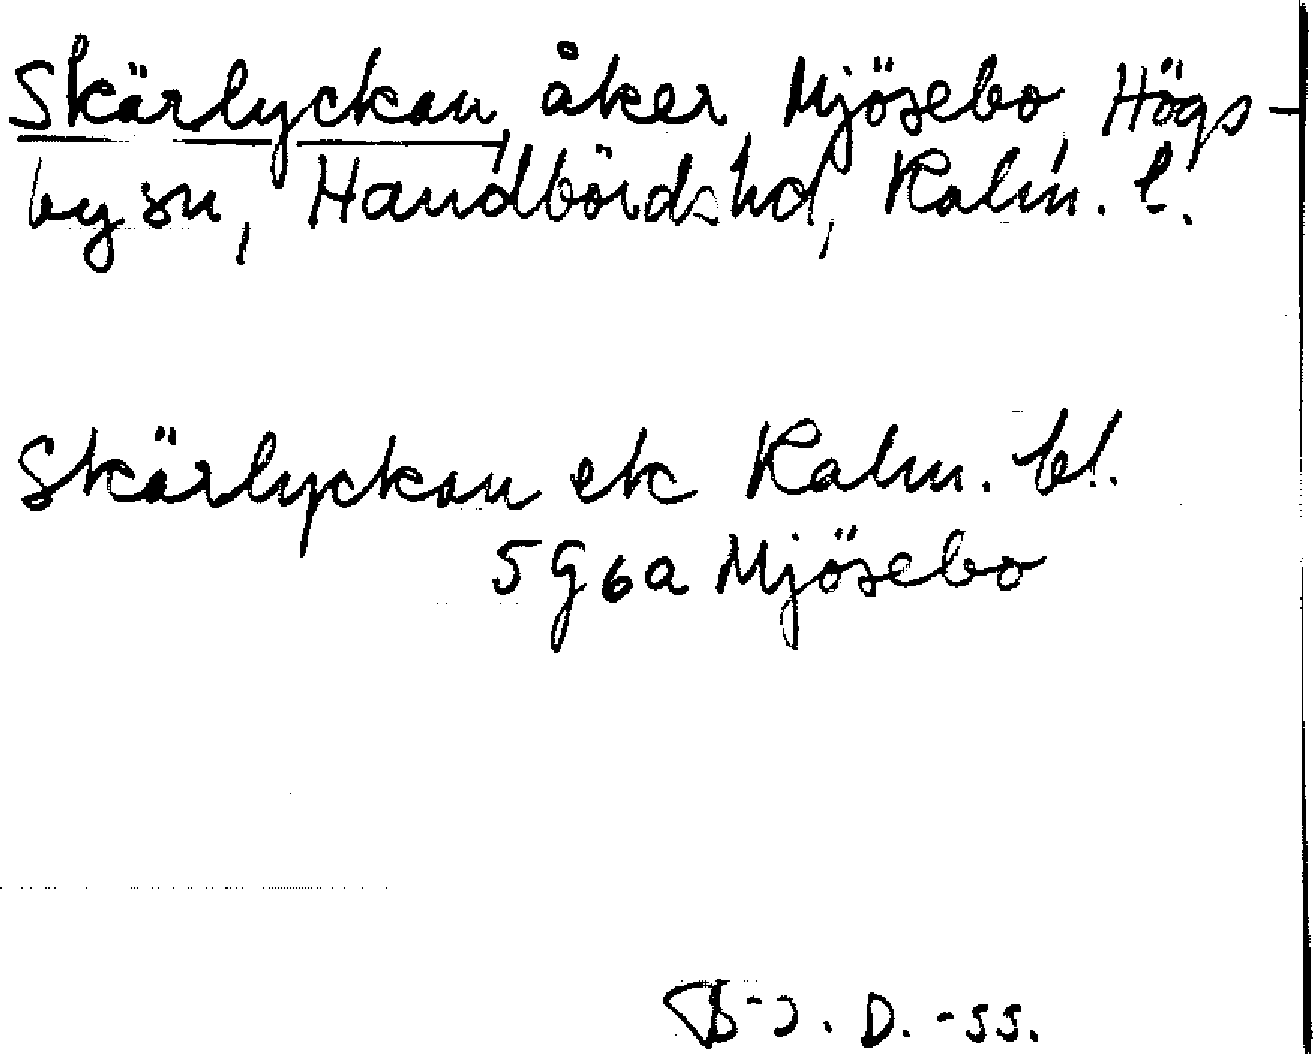 Skärlyckan, åker, Mjösebo, Högs-
by sn, Handbörds hd, Kalm. l.
Skärlyckan ek Kalm. bl.
5G6a Mjösebo
B-J. D. -55.